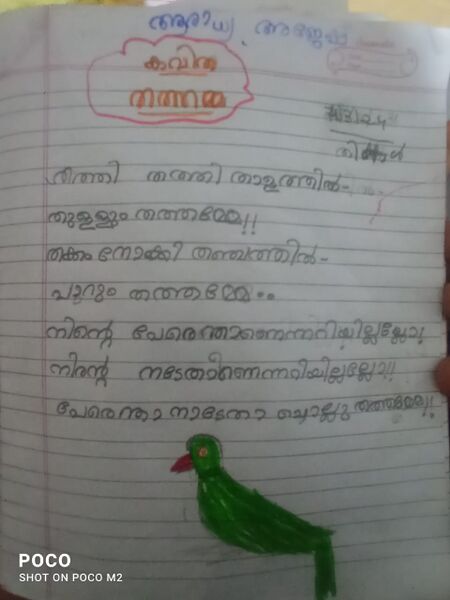 ആരാധ്യ അജേഷ്
കവിത
തത്തമ്മ
തിങ്കൾ
തത്തി തത്തി താളത്തിൽ-
തുള്ളും തത്തമ്മേ!!
തക്കം നോക്കി തഞ്ചത്തിൽ-
പാറും തത്തമ്മേ..
നിന്റെ പേരെന്താണെന്നറിയില്ലല്ലോ!
നിന്റെ നാടേതാണെന്നറിയില്ലല്ലോ!!
പേരെന്താ നാടേതാ ചൊല്ലൂ തത്തമ്മേ!!
POCO
SHOT ON POCO M2